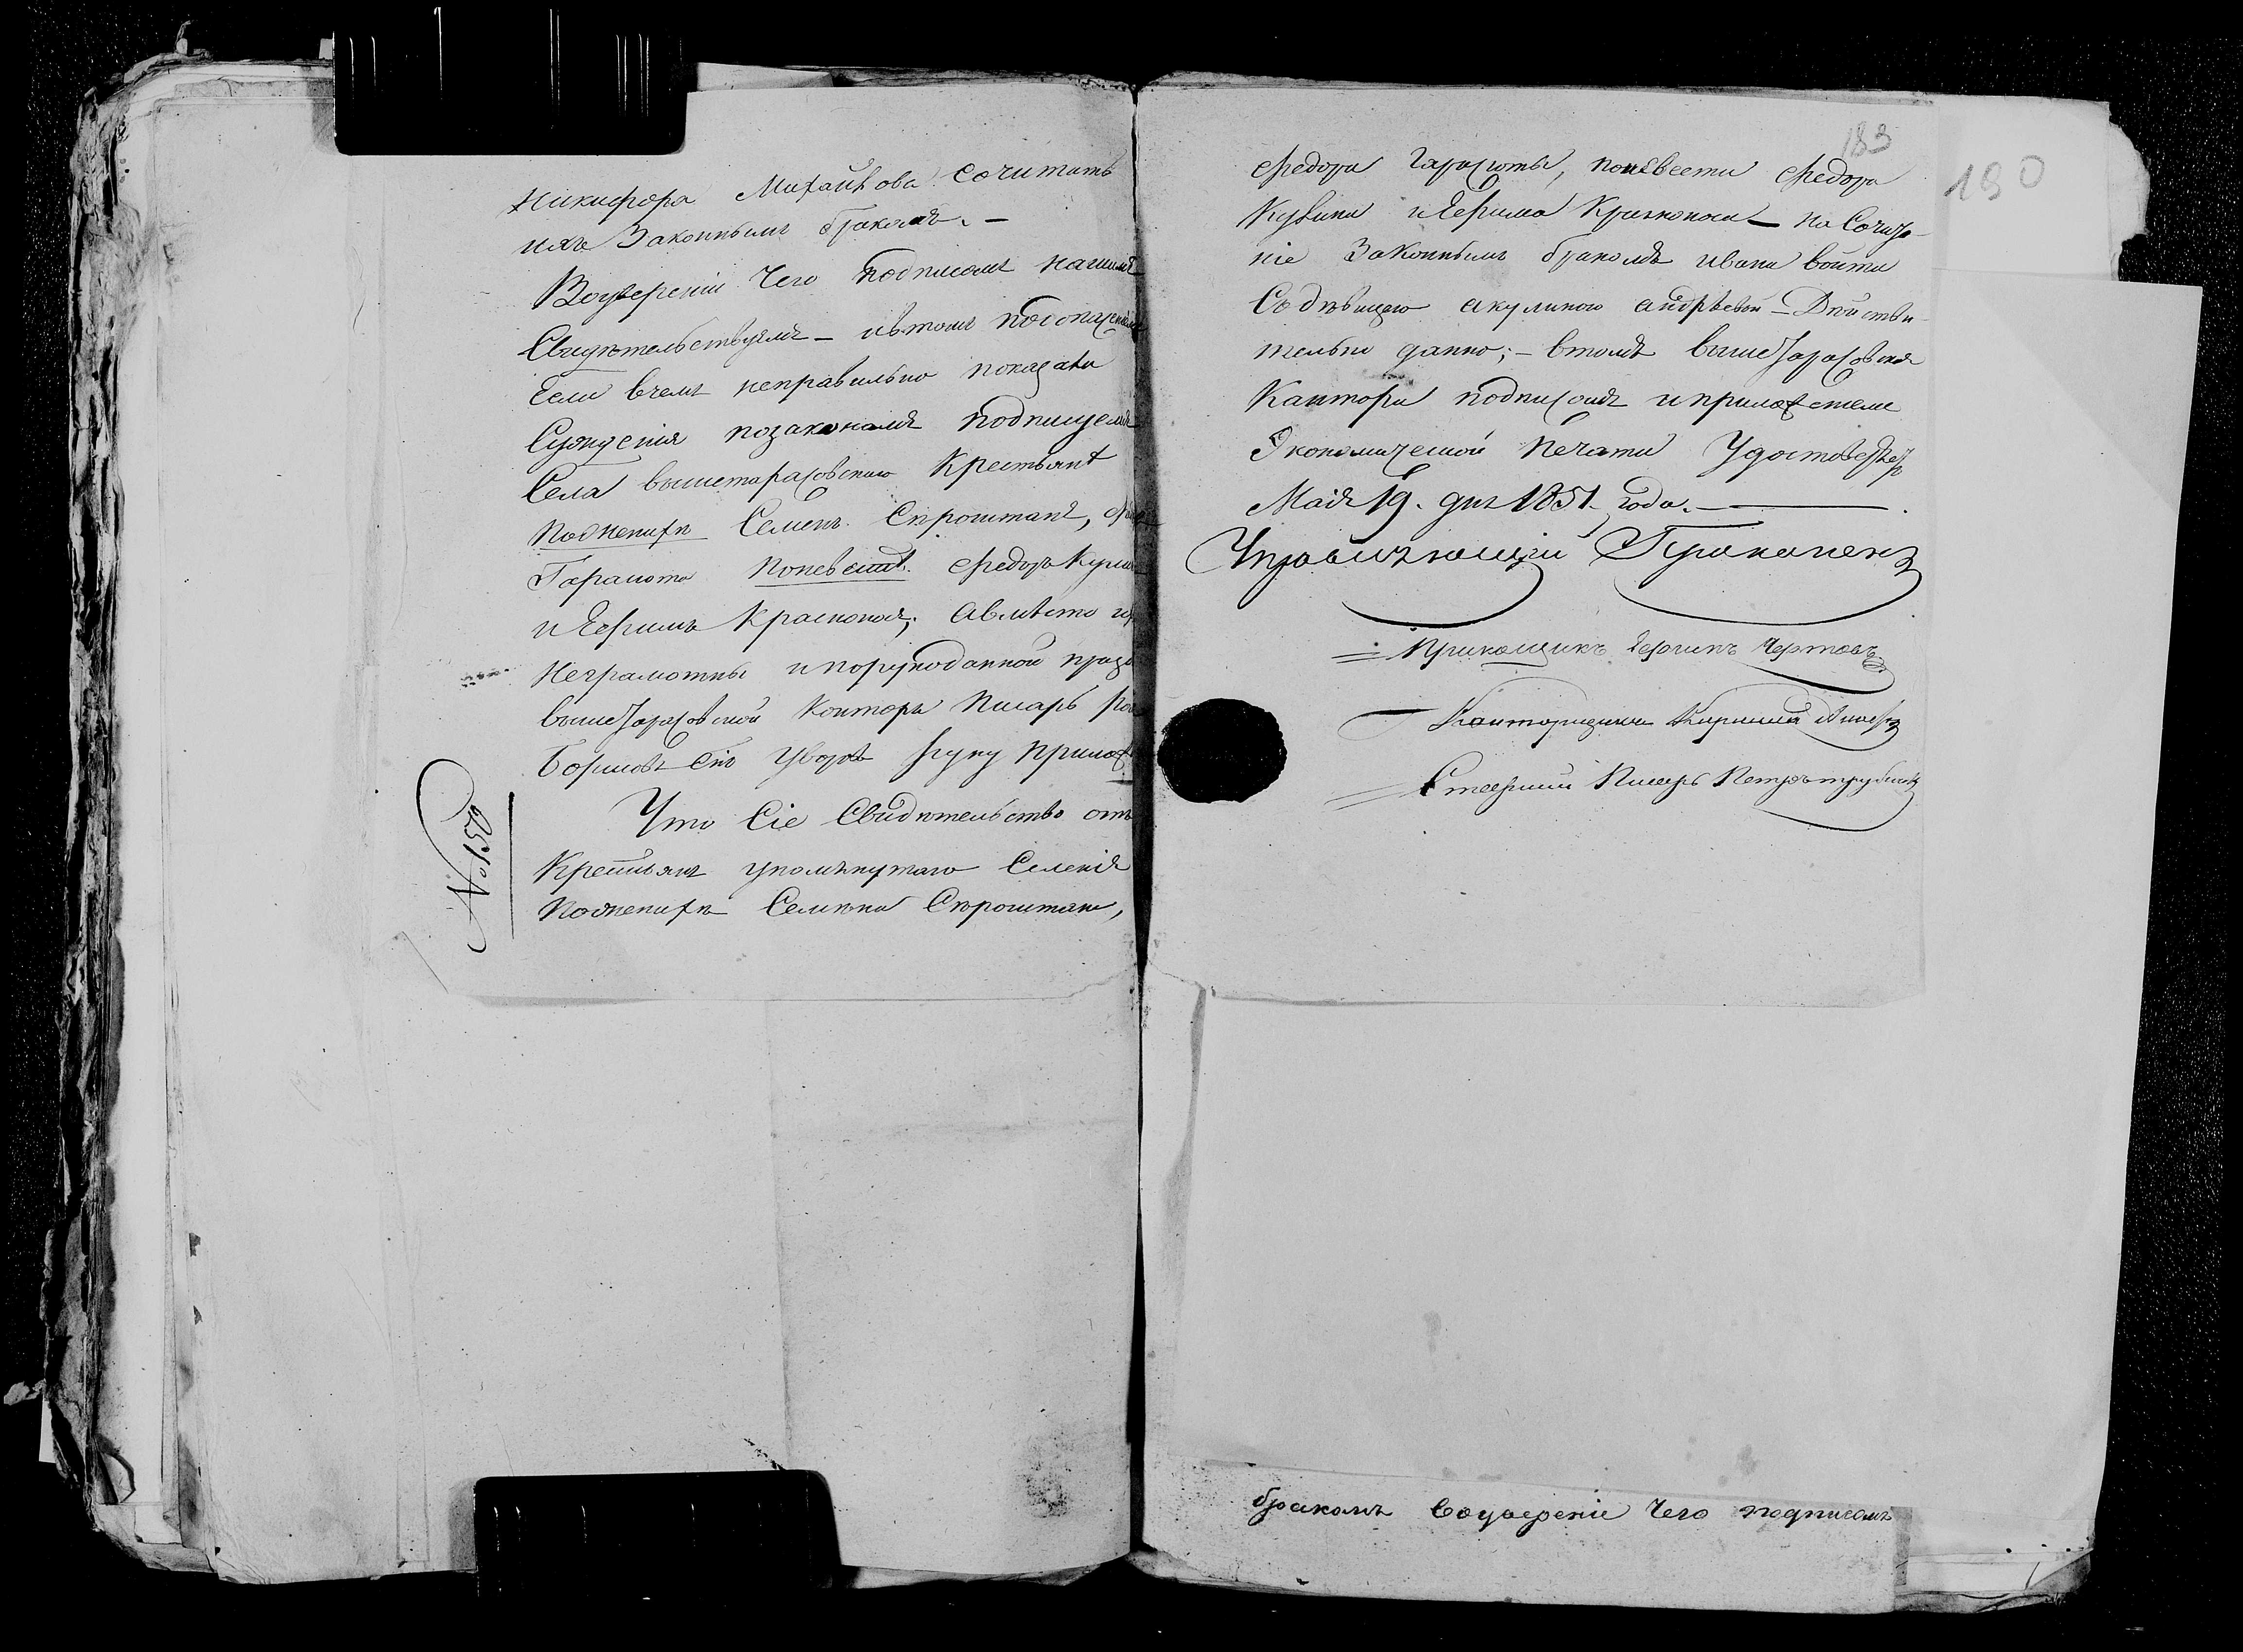 Никифора Михайлова сочитать
ихъ Законнымъ бракомъ. —
Воуверении Чего подписомъ нашимъ
Свидѣтельствуемъ — ивтомъ
Если вчемъ неправильно показали
Суждения позаконамъ подпищемъ
Села вышетарасовскаго Крестьяне
Поженихѣ Семенъ Сѣроштанъ,
Гарамота Поневести Федоръ
и Ефимъ Красноносъ; авместо
Неграмотны ипорукоданной
вышетарасовской Конторы Писарь
Борисовъ Сынъ Уворовъ руку прилож
№ 150
Что Сіе Свидѣтельство отъ
Крестьянъ упомянутаго Селенія
Поженихѣ Семена Сѣроштана,
183
190
Федора Гарамоты, поневести Федора
и Ефима Красноноса — на Сочета-
ніе Законнымъ бракомъ ивана войти
Содѣвицею акулиною андрѣевой — Дѣйстви-
тельно данно; — втомъ вышетарасовская
Кантора подписомъ иприложениемъ
Экономической Печати Удостоверяетъ
Маія 19. дня 1851. года. —
Управляющій
Прикащикъ Чертовъ
Канторщикъ Кирилла
Старший Писарь Петръ
бракомъ Воуверение Чего подписомъ